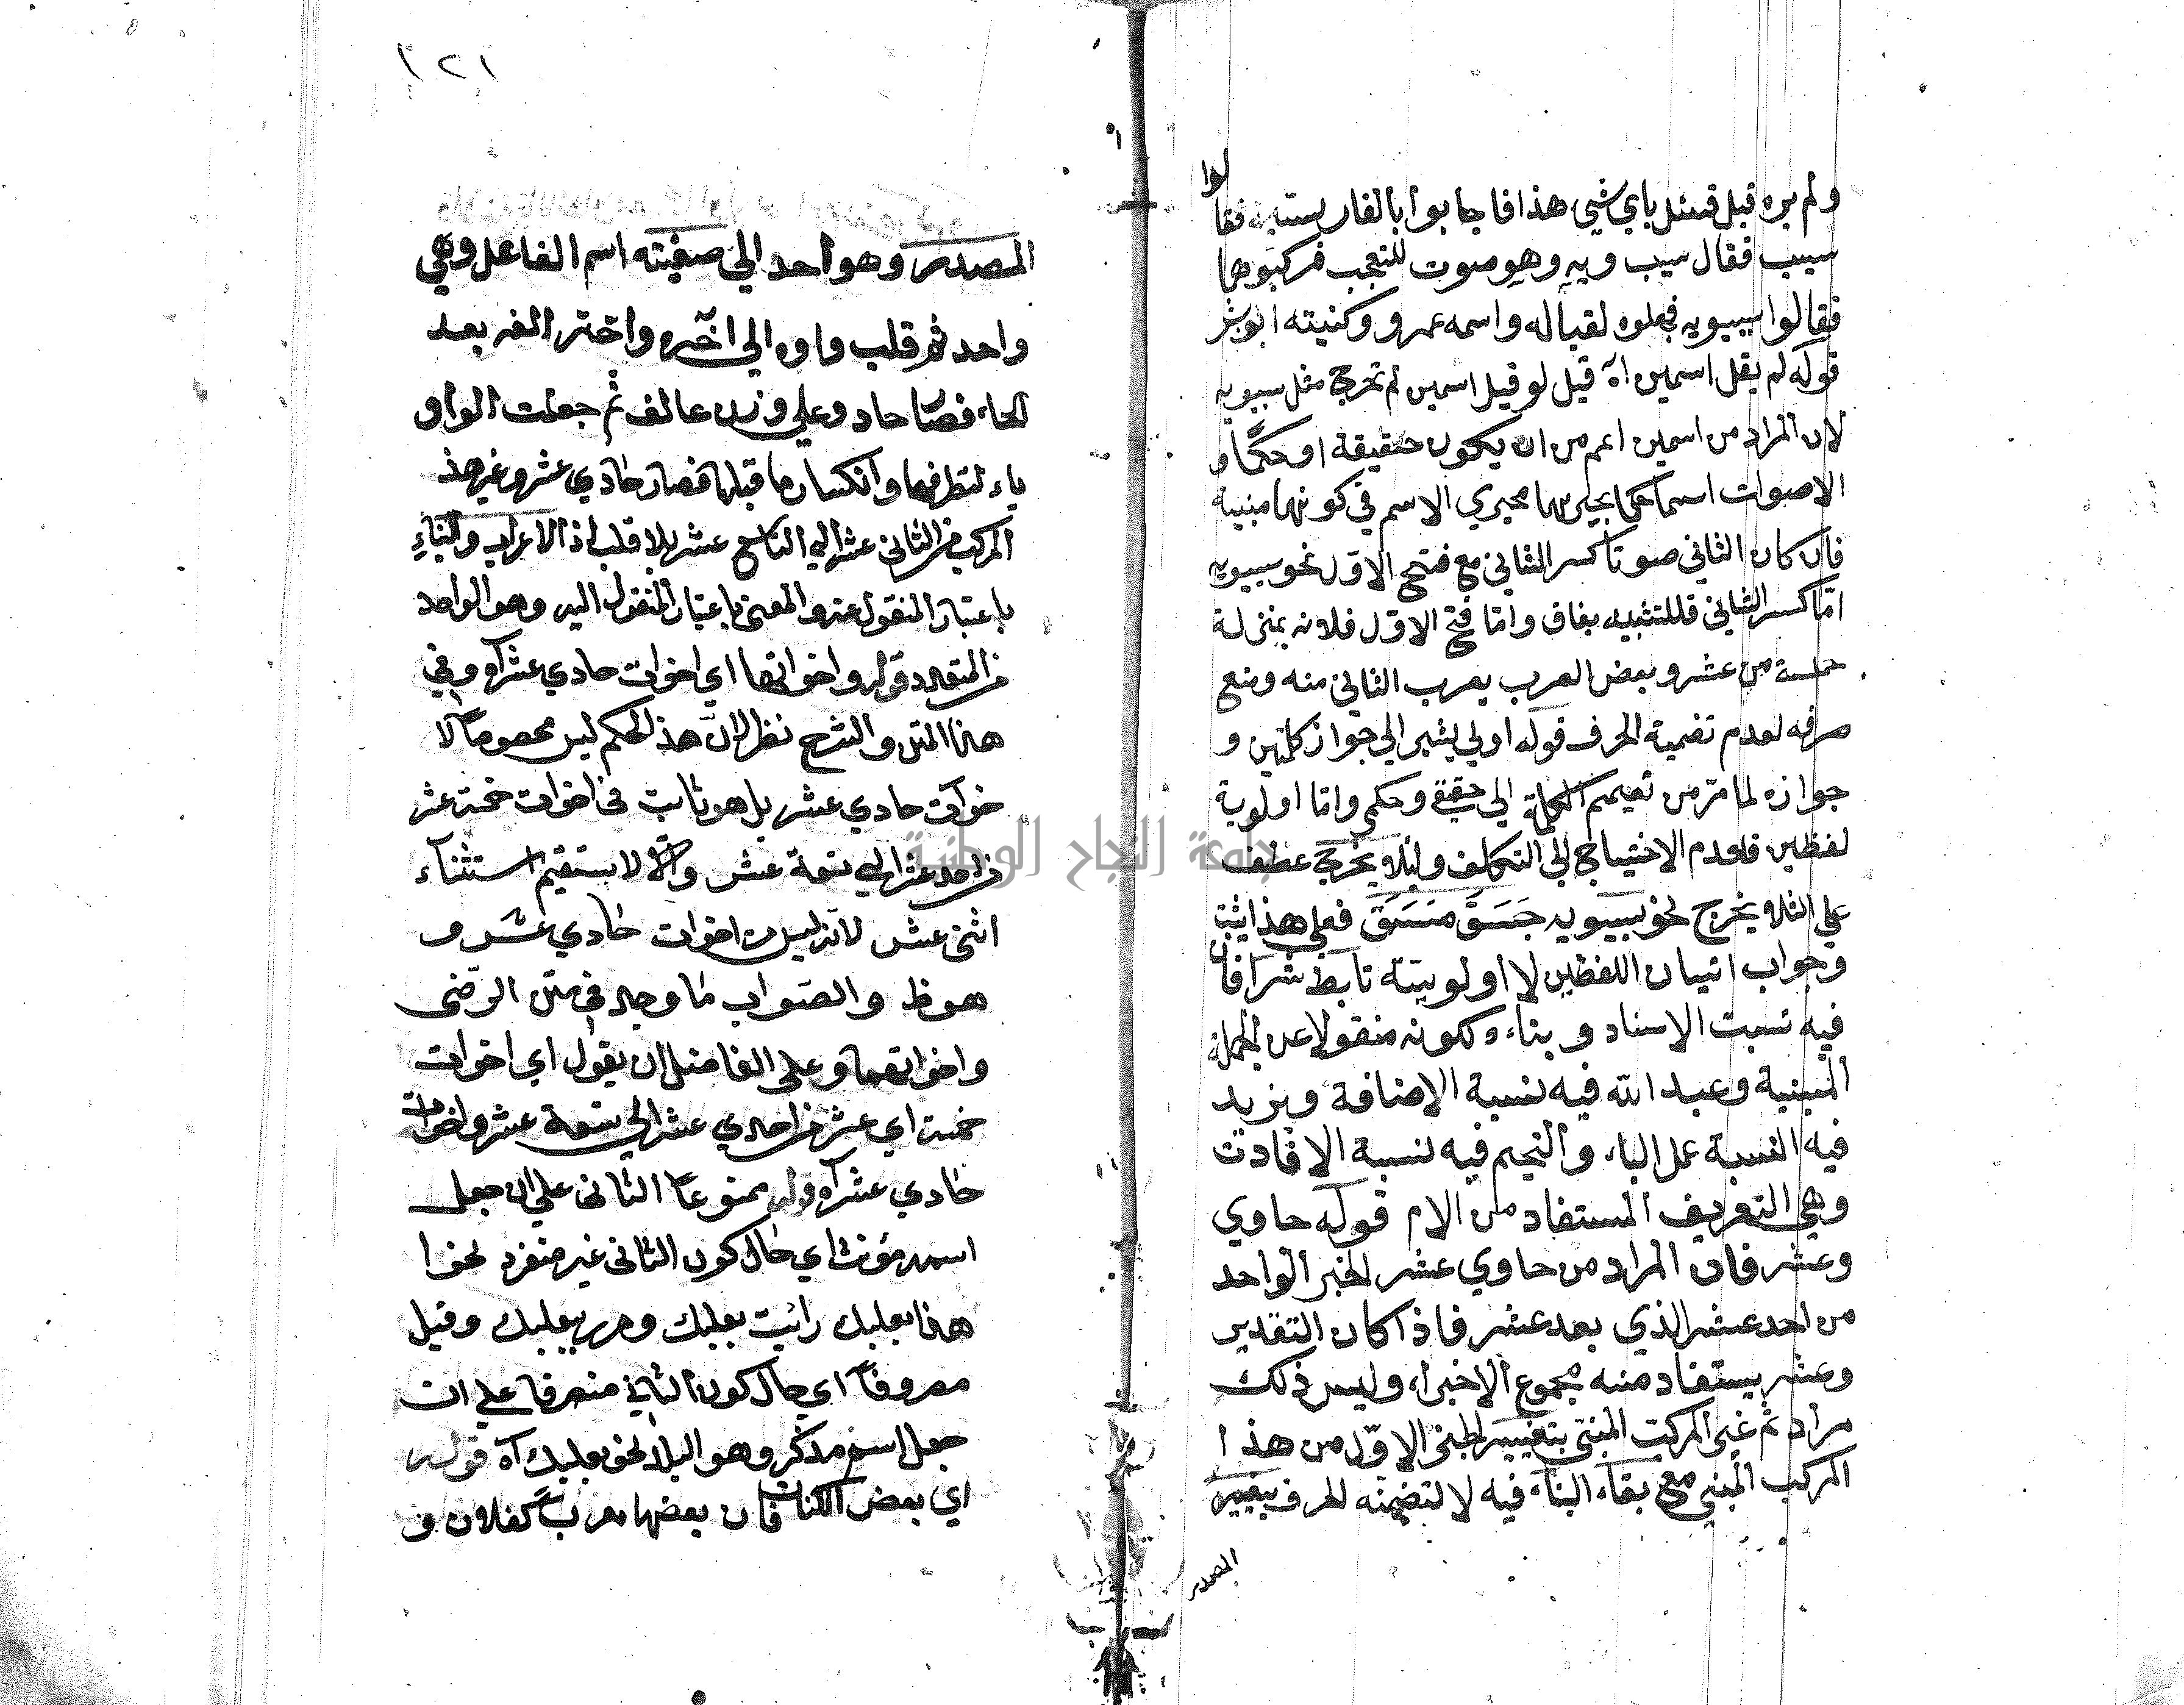 ولم يره قبل فسئل باي شيء هذا فاجابوا بالفارسية فقالوا
سيب فقال سيب ويه وهو صوت للتعجب فركبوهما
فقالوا سيبويه فجعلوه لقباله واسمه عمرو وكنيته ابو بشر
قوله لم يقل اسمين اه قيل لو قيل اسمين لم تخرج مثل سيبويه
لان المراد من اسمين اعم من ان يكون حقيقة او حكما و
الاصوات اسما حكما بجريها مجرى الاسم في كونها مبنية
فان كان الثاني صوتا كسر الثاني مع فتح الاول نحو سيبويه
اما كسر الثاني فللتشبيه بغاق واما فتح الاول فلانه بمنزلة
خمسة من عشر وبعض العرب يعرب الثاني منه ومنع
صرفه لعدم تضمية الحرف قوله اولي يشير الي جواز كلمتين و
جوازه لما مر من تعميم الكلمة الي حقيقي وحكمي واما اولوية
لفظين فلعدم الاحتياج الي التكلف ولئلا يخرج عطف
علي لئلا يخرج نحو سيبويه جَسَقَ مَسَقَ فعلي هذا يثبت
وجواب اتيان اللفظين لا اولويته تابط شرا فان
فيه نسبت الاسناد وبناءه لكونه منقولا عن الجملة
المبنية وعبد الله فيه نسبة الاضافة وبزيد
فيه النسبة عمل الباء والنجم فيه نسبة الافادت
وهي التعريف المستفاد من الام قوله حاوي
وعشر فان المراد من حاوي عشر الخبر الواحد
من احد عشر الذي بعد عشر فاذا كان التقدير
وعشر يستفاد منه مجموع الاخبراء وليس ذلك
مراد ثم غير المركب المبني بتغيير الجزء الاول من هذا
المركب المبني مع بقاء البناء فيه لا لتضمنه للحرف بتغيير
المصدر
١٢١
المصدر وهو احد الي صيغته اسم الفاعل وهي
واحد ثم قلب واوه الي آخره واخر الفه بعد
الحاء فصار حادو علي وزن عالف ثم جعلت الواو
ياء لتطرفها وانكسار ما قبلها فصار حادي عشر وغير هذا
المركب من الثاني عشر الي التاسع عشر بلا قلب اذ الاعراب والبناء
باعتبار المنقول عنه والمعنى باعتبار المنقول اليه وهو الواحد
من المتعدد قوله واخواتها اي اخوات حادي عشر آه وفي
هذا المتن والشرح نظر لان هذا الحكم ليس مخصوصا لا
خوات حادي عشر بل هو ثابت في اخوات خمسة عشر
من احد عشر الي تسعة عشر والا لا يستقيم استثناء
اثني عشر لانه ليس من اخوات حادي عشر و
هو ظ والصواب ما وجد في متن الرضى
واخواتهما وعلى الفاضل ان يقول اي اخوات
خمسة اي عشر من احدي عشر الي تسعة عشر واخوات
حادي عشر آه قوله ممنوعا الثاني علي ان جعل
اسمه مؤنث اي حال كون الثاني غير منفرد نحو ا
هذا بعلبك رائيت بعلبك ومرر ببعلبك وقيل
معروفا اي حال كون الثاني منصرفا علي ان
جعل اسم مذكر وهو البلد نحو بعلبك آه قوله
اي بعض الكنايات فان بعضها معرب كفلان و
جامعة النجاح الوطنية